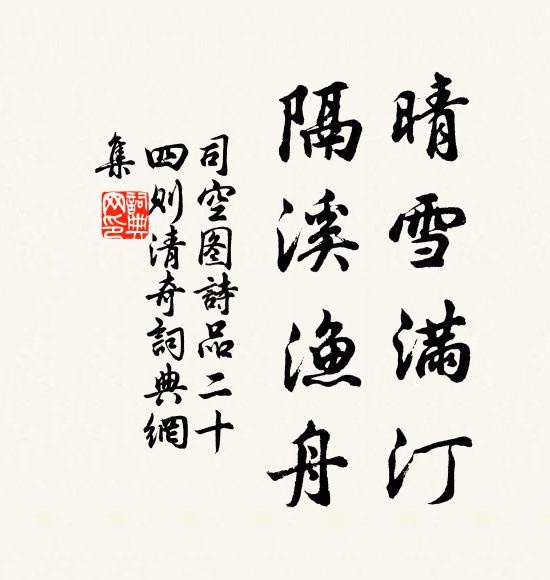 晴雪滿汀
隔溪漁舟
司空图詩品二十
四则清奇詞典網
集
詞典網印